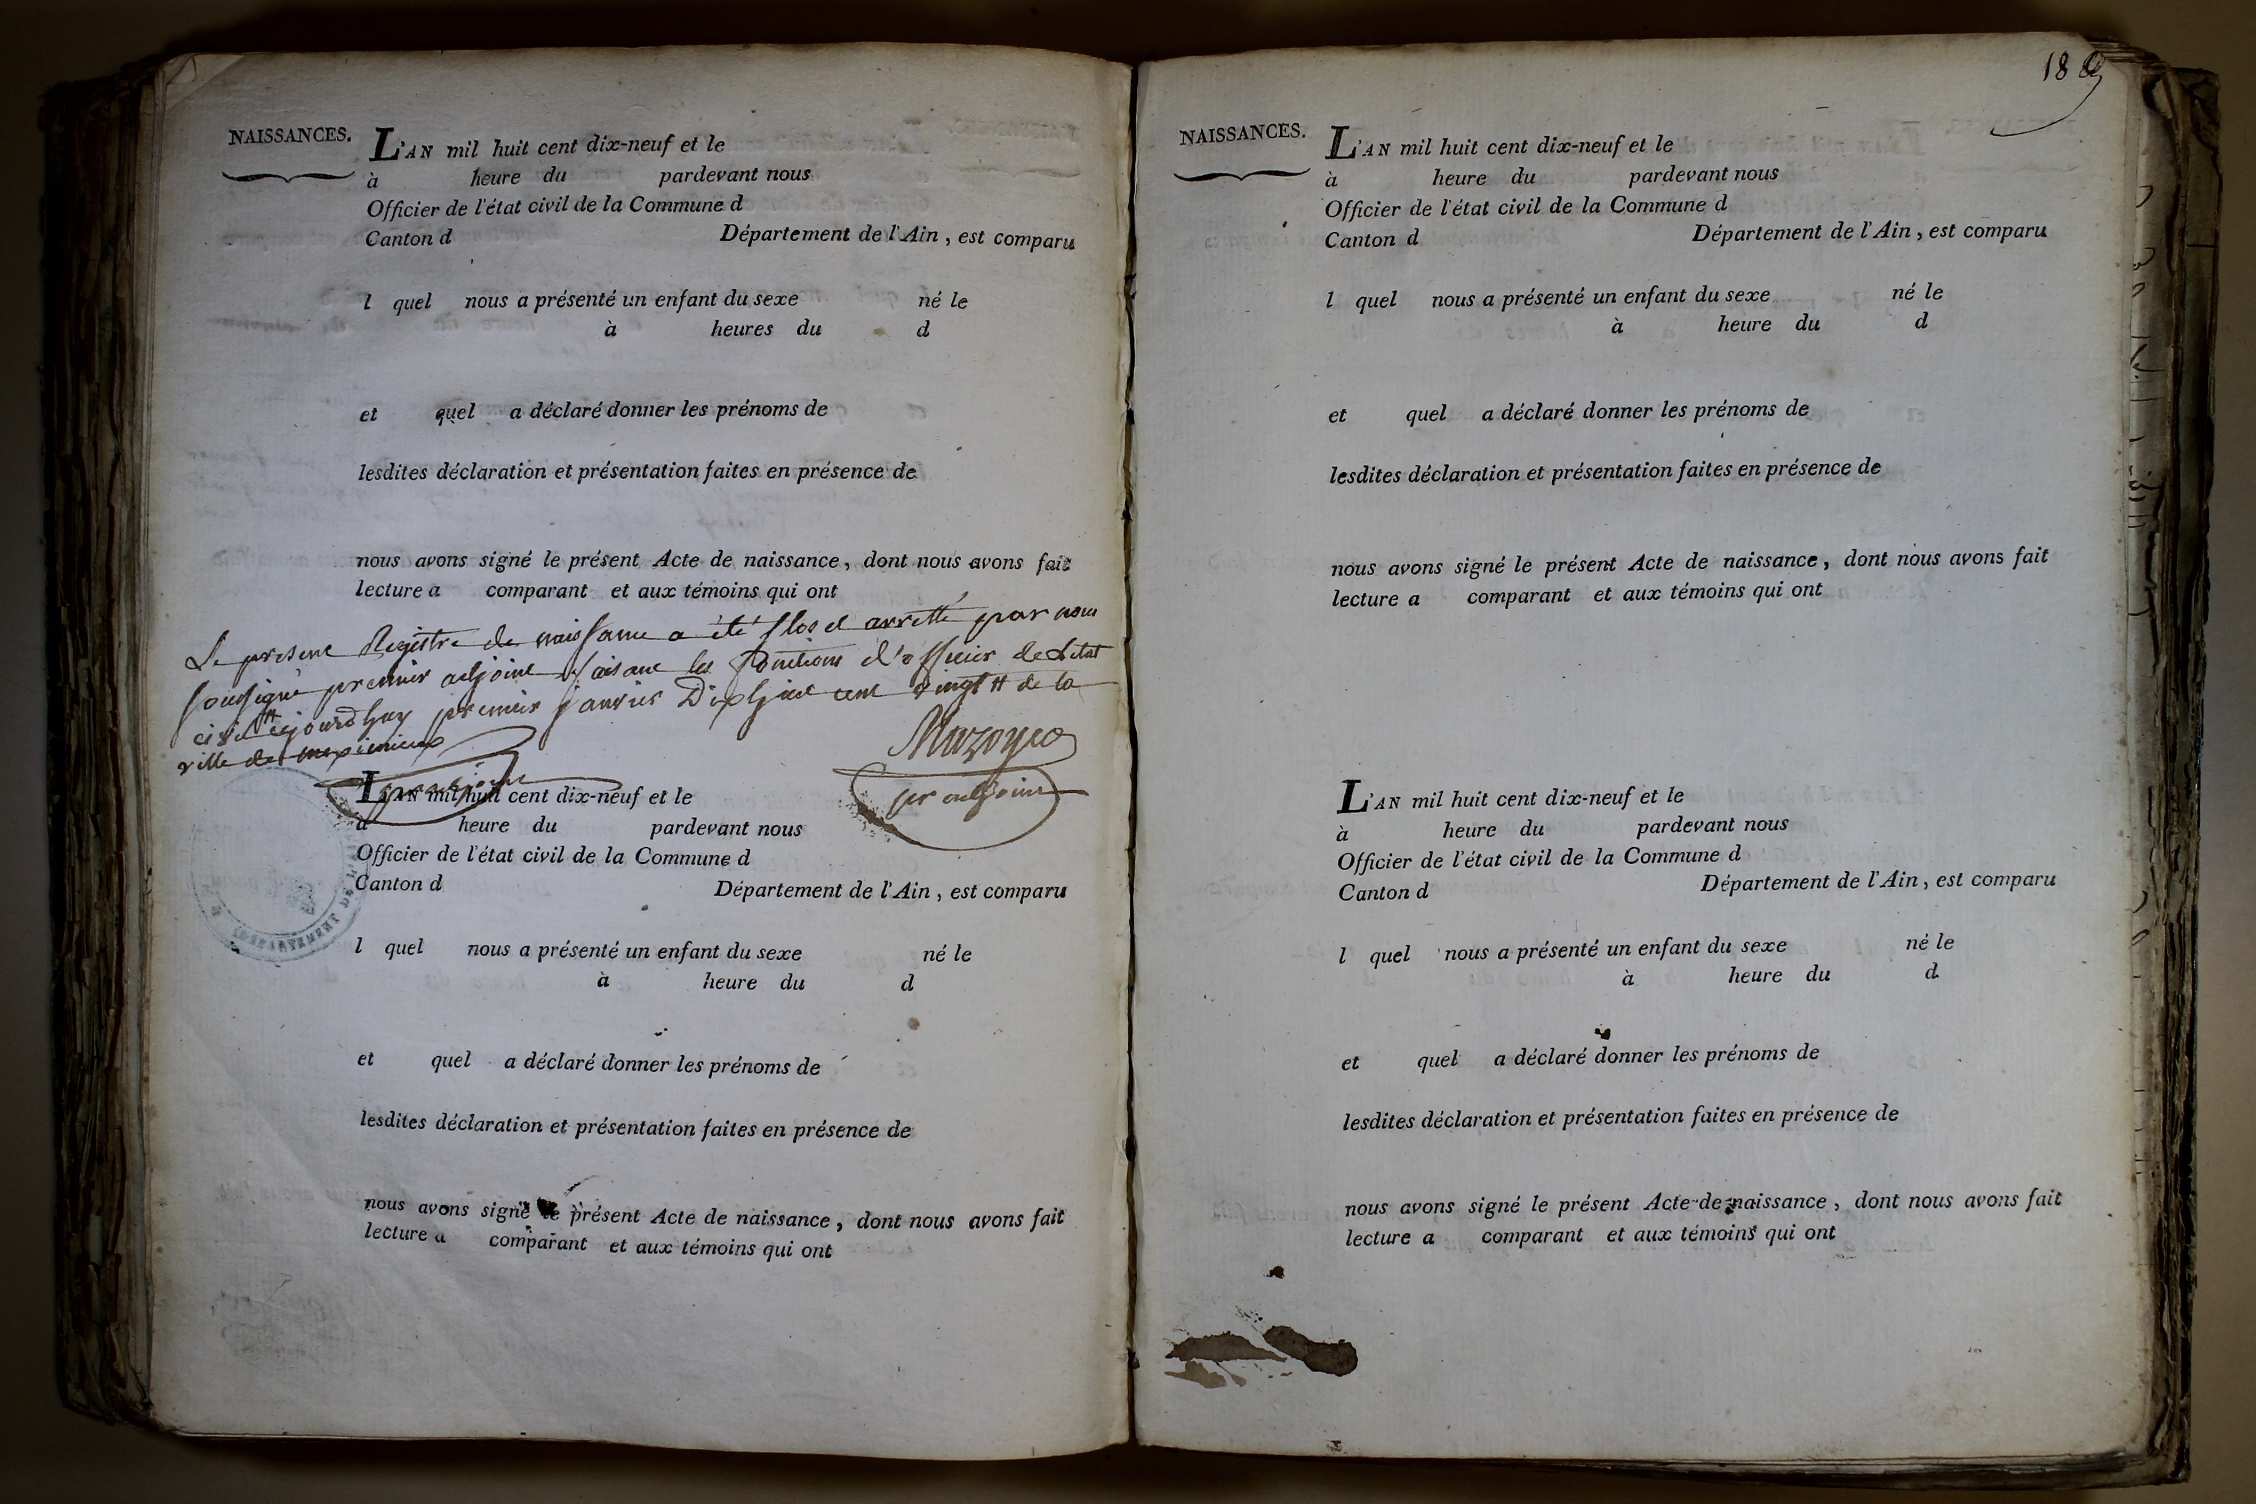 NAISSANCES.
L'AN mil huit cent dix-neuf et le
à heure du pardevant nous
Officier de l'état civil de la Commune d
Canton d Département de l'Ain, est comparu
l quel nous a présenté un enfant du sexe né le
à heures du d
et quel a déclaré donner les prénoms de
lesdites déclaration et présentation faites en présence de
nous avons signé le présent Acte de naissance, dont nous avons fait
lecture a comparant et aux témoins qui ont
Le present Registre de naissance a été Clos et arretté par nous
soussigné premier adjoint faisant les fonctions d'officier de L'etat
civil cejourd'huy premier janvier Dixhuit cent vingt de la
ville de meximieux
pr adjoint
L'AN mil huit cent dix-neuf et le
à heure du pardevant nous
Officier de l'état civil de la Commune d
Canton d Département de l'Ain, est comparu
DEPARTEMENT DE L'AIN
l quel nous a présenté un enfant du sexe né le
à heure du d
et quel a déclaré donner les prénoms de
lesdites déclaration et présentation faites en présence de
nous avons signé le présent Acte de naissance, dont nous avons fait
lecture a comparant et aux témoins qui ont
NAISSANCES.
L'AN mil huit cent dix-neuf et le
à heure du pardevant nous
Officier de l'état civil de la Commune d
Canton d Département de l'Ain, est comparu
l quel nous a présenté un enfant du sexe né le
à heure du d
et quel a déclaré donner les prénoms de
lesdites déclaration et présentation faites en présence de
nous avons signé le présent Acte de naissance, dont nous avons fait
lecture a comparant et aux témoins qui ont
L'AN mil huit cent dix-neuf et le
à heure du pardevant nous
Officier de l'état civil de la Commune d
Canton d Département de l'Ain, est comparu
l quel nous a présenté un enfant du sexe né le
à heure du d
et quel a déclaré donner les prénoms de
lesdites déclaration et présentation faites en présence de
nous avons signé le présent Acte de naissance, dont nous avons fait
lecture a comparant et aux témoins qui ont